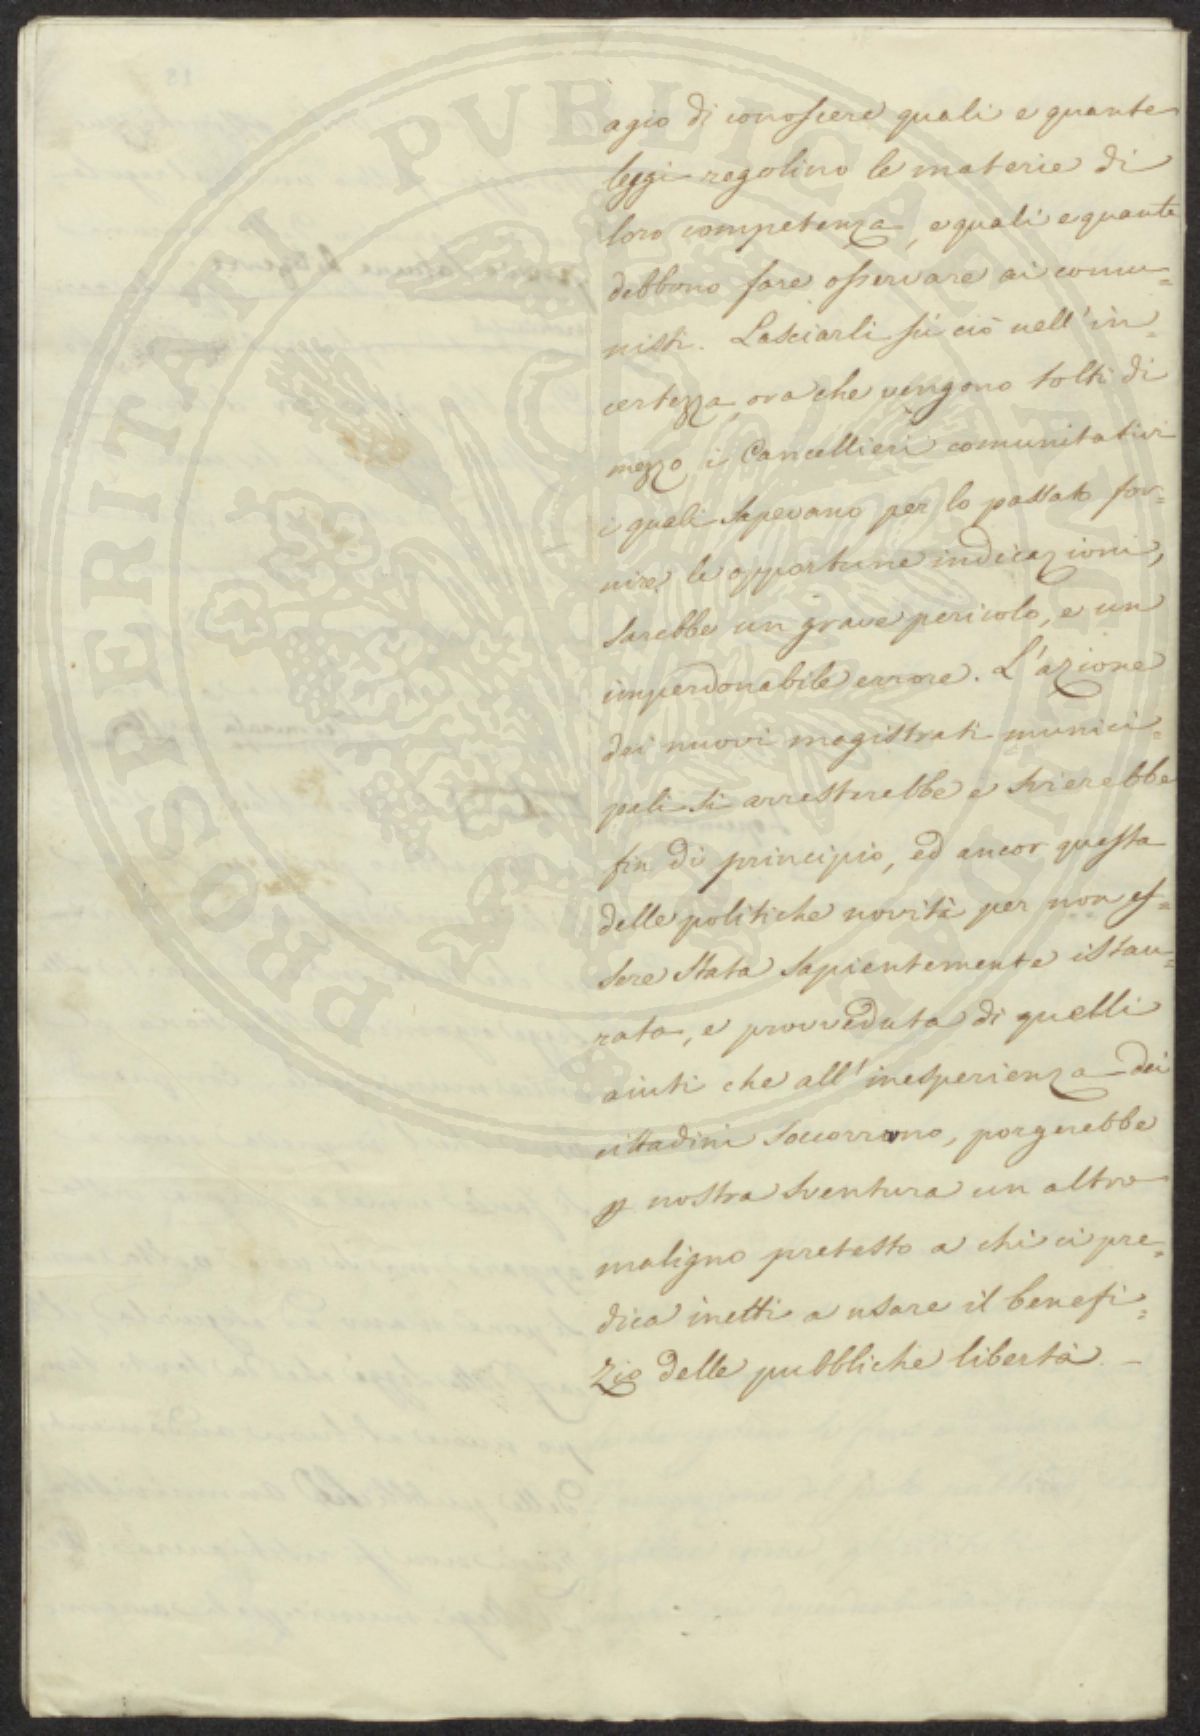 PROSPERITATI PVBLICAE AVGENDAE
agio di conoscere quali e quante
leggi regolino le materie di
loro competenza, e quali e quante
debbono fare osservare ai comu=
nisti. Lasciarli su ciò nell'in=
certezza, ora che vengono tolti di
mezzo i Cancellieri comunitativi
i quali sapevano per lo passato for=
nire le opportune indicazioni,
sarebbe un grave pericolo, e un
imperdonabile errore. L'azione
dei nuovi magistrati munici=
pali si arresterebbe e svierebbe
fin di principio, ed ancor questa
delle politiche novità per non es=
sere stata sapientemente istau=
rata, e provveduta di quelli
aiuti che all'inesperienza dei
cittadini soccorrono, porgerebbe
p nostra sventura un altro
maligno pretesto a chi ci pre=
dica inetti a usare il benefi=
zio delle pubbliche libertà. —